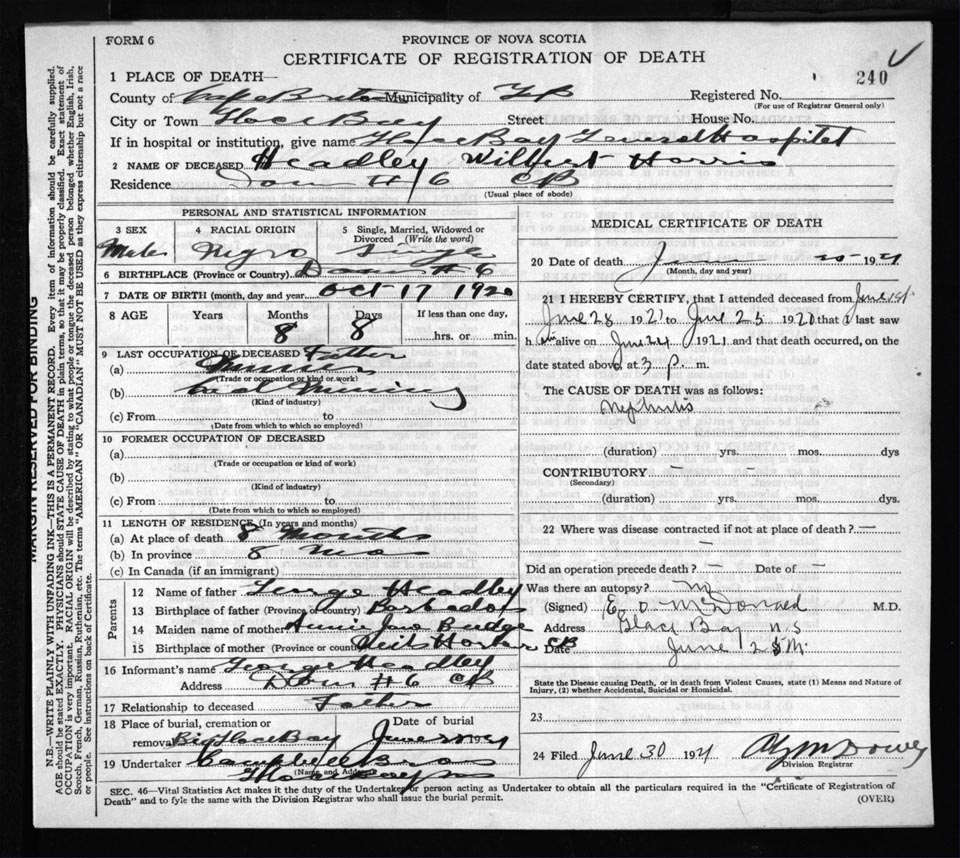 FORM 6
PROVINCE OF NOVA SCOTIA
CERTIFICATE OF REGISTRATION OF DEATH
240
1 PLACE OF DEATH—
County of Cape Breton Municipality of CB Registered No.
(For use of Registrar General only)
City or Town Glace Bay Street House No.
If in hospital or institution, give name Glace Bay General Hospital
2 NAME OF DECEASED Headley Wilbert Harris
Residence Dom #6 CB
(Usual place of abode)
PERSONAL AND STATISTICAL INFORMATION
3 SEX 4 RACIAL ORIGIN 5 Single, Married, Widowed or
Divorced (Write the word)
Male Negro Single
6 BIRTHPLACE (Province or Country) Dom #6
7 DATE OF BIRTH (month, day and year) Oct 17 1920
8 AGE Years Months Days If less than one day,
8 8 hrs. or min.
9 LAST OCCUPATION OF DECEASED Father
(a) Miner
(Trade or occupation or kind of work)
(b) Coal Mining
(Kind of industry)
(c) From to
(Date from which to which so employed)
10 FORMER OCCUPATION OF DECEASED
(a)
(Trade or occupation or kind of work)
(b)
(Kind of industry)
(c) From to
(Date from which to which so employed)
11 LENGTH OF RESIDENCE (In years and months)
(a) At place of death 8 Months
(b) In province 8 Mos
(c) In Canada (if an immigrant)
Parents
12 Name of father George Headley
13 Birthplace of father (Province or country) Barbados
14 Maiden name of mother Annie Jane Budge
15 Birthplace of mother (Province or country) Neils Harbor CB
16 Informant's name George Headley
Address Dom #6 CB
17 Relationship to deceased Father
18 Place of burial, cremation or Date of burial
removal Big Glace Bay June 192
19 Undertaker Campbell Bros
(Name and Address)
Glace Bay NS
MEDICAL CERTIFICATE OF DEATH
20 Date of death June 25 1921
(Month, day and year)
21 I HEREBY CERTIFY, that I attended deceased from June 21
June 23 1921 to June 25 1921 that I last saw
him alive on June 24 1921 and that death occurred, on the
date stated above, at 3 p. m.
The CAUSE OF DEATH was as follows:
Nephritis
(duration) yrs. mos. dys
CONTRIBUTORY — —
(Secondary)
(duration) yrs. mos. dys.
22 Where was disease contracted if not at place of death? —
Did an operation precede death? — Date of —
Was there an autopsy? No
(Signed) E. O. McDonald M.D.
Address Glace Bay N.S.
Date June
State the Disease causing Death, or in death from Violent Causes, state (1) Means and Nature of
Injury, (2) whether Accidental, Suicidal or Homicidal.
23
24 Filed June 30 1921
Division Registrar
SEC. 46—Vital Statistics Act makes it the duty of the Undertaker or person acting as Undertaker to obtain all the particulars required in the "Certificate of Registration of
Death" and to fyle the same with the Division Registrar who shall issue the burial permit.
(OVER)
MARGIN RESERVED FOR BINDING
N.B.—WRITE PLAINLY WITH UNFADING INK—THIS IS A PERMANENT RECORD. Every item of information should be carefully supplied.
AGE should be stated EXACTLY. PHYSICIANS should STATE CAUSE OF DEATH in plain terms, so that it may be properly classified. Exact statement of
OCCUPATION is very important. RACIAL ORIGIN will be described by stating to what people or tongue the deceased person belonged whether English, Irish,
Scotch, French, German, Russian, Ruthenian, etc. The terms "AMERICAN" OR "CANADIAN" MUST NOT BE USED as they express citizenship but not a race
or people. See instructions on back of Certificate.